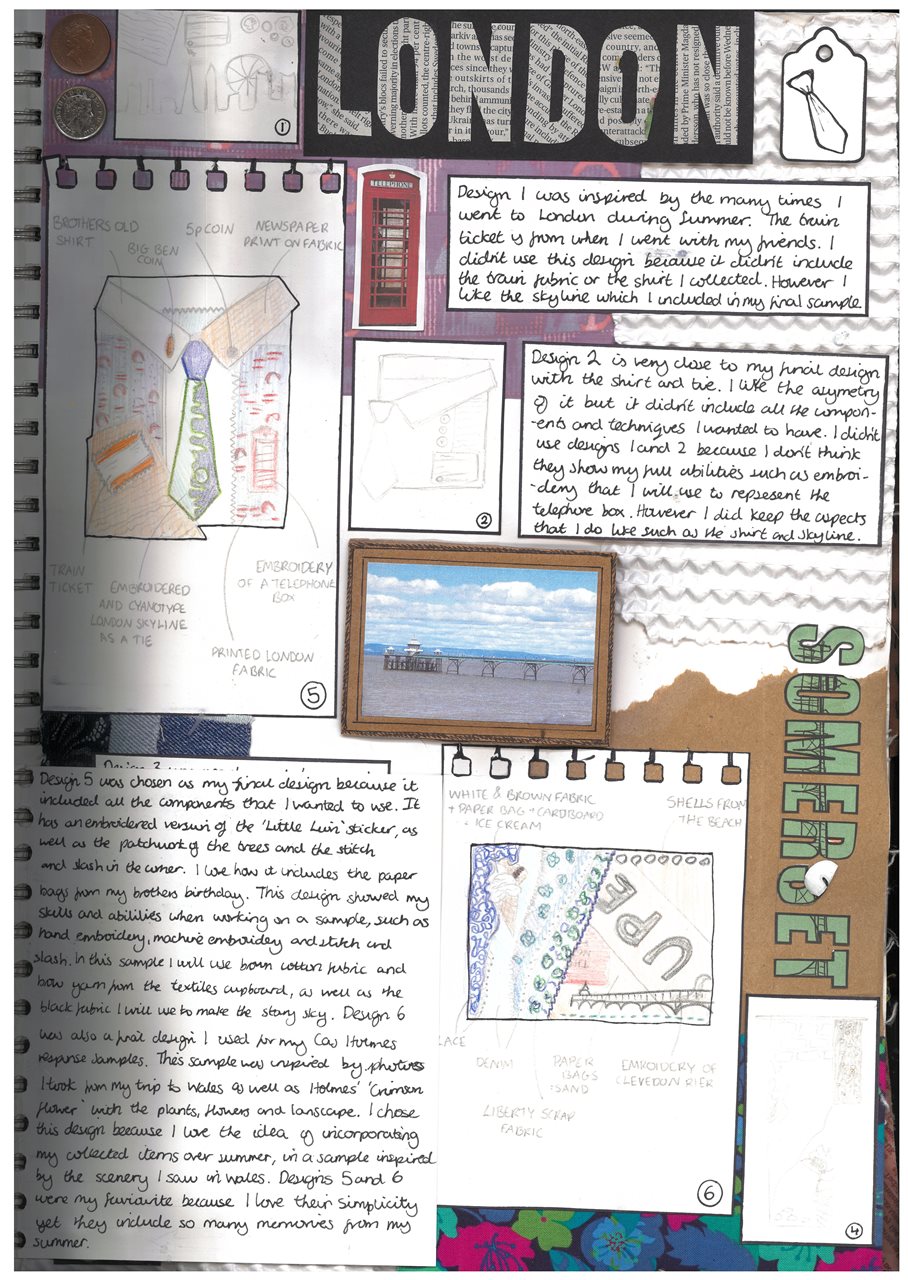 LONDON
1
TELEPHONE
Design 1 was inspired by the many times I
went to London during Summer. The train
ticket is from when I went with my friends. I
didn't use this design because it didn't include
the train fabric or the shirt I collected. However I
like the skyline which I included in my final sample.
BROTHERS OLD
SHIRT
BIG BEN
COIN
5p COIN
NEWSPAPER
PRINT ON FABRIC
TRAIN
TICKET
EMBROIDERED
AND CYANOTYPE
LONDON SKYLINE
AS A TIE
EMBROIDERY
OF A TELEPHONE
BOX
PRINTED LONDON
FABRIC
5
2
Design 2 is very close to my final design
with the shirt and tie. I like the asymetry
of it but it didn't include all the compon-
-ents and techniques I wanted to have. I didn't
use designs 1 and 2 because I don't think
they show my full abilities such as embroi-
-dery that I will use to represent the
telephone box. However I did keep the aspects
that I do like such as the shirt and skyline.
SOMERSET
Design 5 was chosen as my final design because it
included all the components that I wanted to use. It
has an embroidered version of the 'Little Luin' sticker, as
well as the patchwork of the trees and the stitch
and slash in the corner. I love how it includes the paper
bags from my brothers birthday. This design showed my
skills and abilities when working on a sample, such as
hand embroidery, machine embroidery and stitch and
slash. In this sample I will use brown cotton fabric and
bow yarn from the textiles cupboard, as well as the
black fabric I will use to make the stary sky. Design 6
was also a final design I used for my Cas Holmes
response samples. This sample was inspired by photos
I took from my trip to Wales as well as Holmes' 'Crimson
flower' with the plants, flowers and lanscape. I chose
this design because I love the idea of incorporating
my collected items over summer, in a sample inspired
by the scenery I saw in Wales. Designs 5 and 6
were my faviourite because I love their simplicity
yet they include so many memories from my
summer.
WHITE & BROWN FABRIC
+ PAPER BAG + CARDBOARD
= ICE CREAM
SHELLS FROM
THE BEACH
UPE
LACE
DENIM
PAPER
BAGS
SAND
EMBROIDERY OF
CLEVEDON PIER
LIBERTY SCRAP
FABRIC
6
4